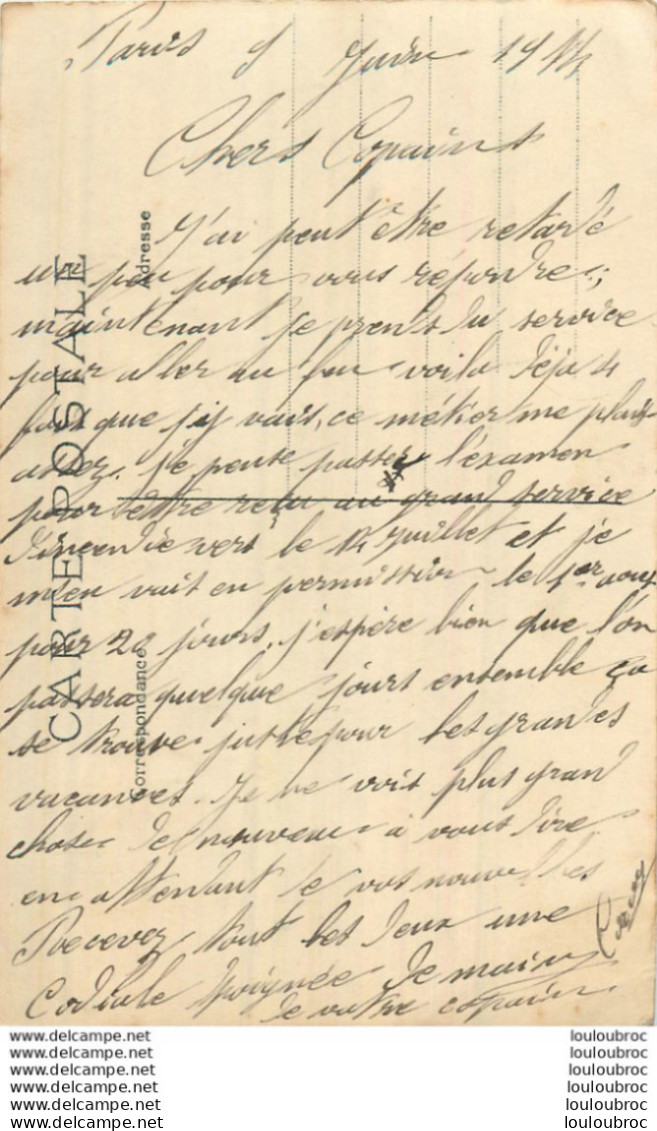 Paris 5 Juin 1914
Chers Copains
J'ai peut être retardé
un peu pour vous répondre,
maintenant je prens du service
pour aller au feu voila déja 4
fois que j'y vais, ce métier me plais
assez. je pense passer l'examen
pour être reçu au grand service
d'incendie vers le 14 juillet et je
m'en vait en permission le 1er aout
pour 20 jours. j'espère bien que l'on
passera quelque jours ensemble ça
se trouve juste pour les grandes
vacances. Je ne vois plus grand
chose de nouveau à vous dire
en attendant de vos nouvelles
Recevez tout les deux une
Codiale poignée de main
de votre copain
CARTE POSTALE
Correspondance
Adresse
www.delcampe.net louloubroc
www.delcampe.net louloubroc
www.delcampe.net louloubroc
www.delcampe.net louloubroc
www.delcampe.net louloubroc
www.delcampe.net louloubroc